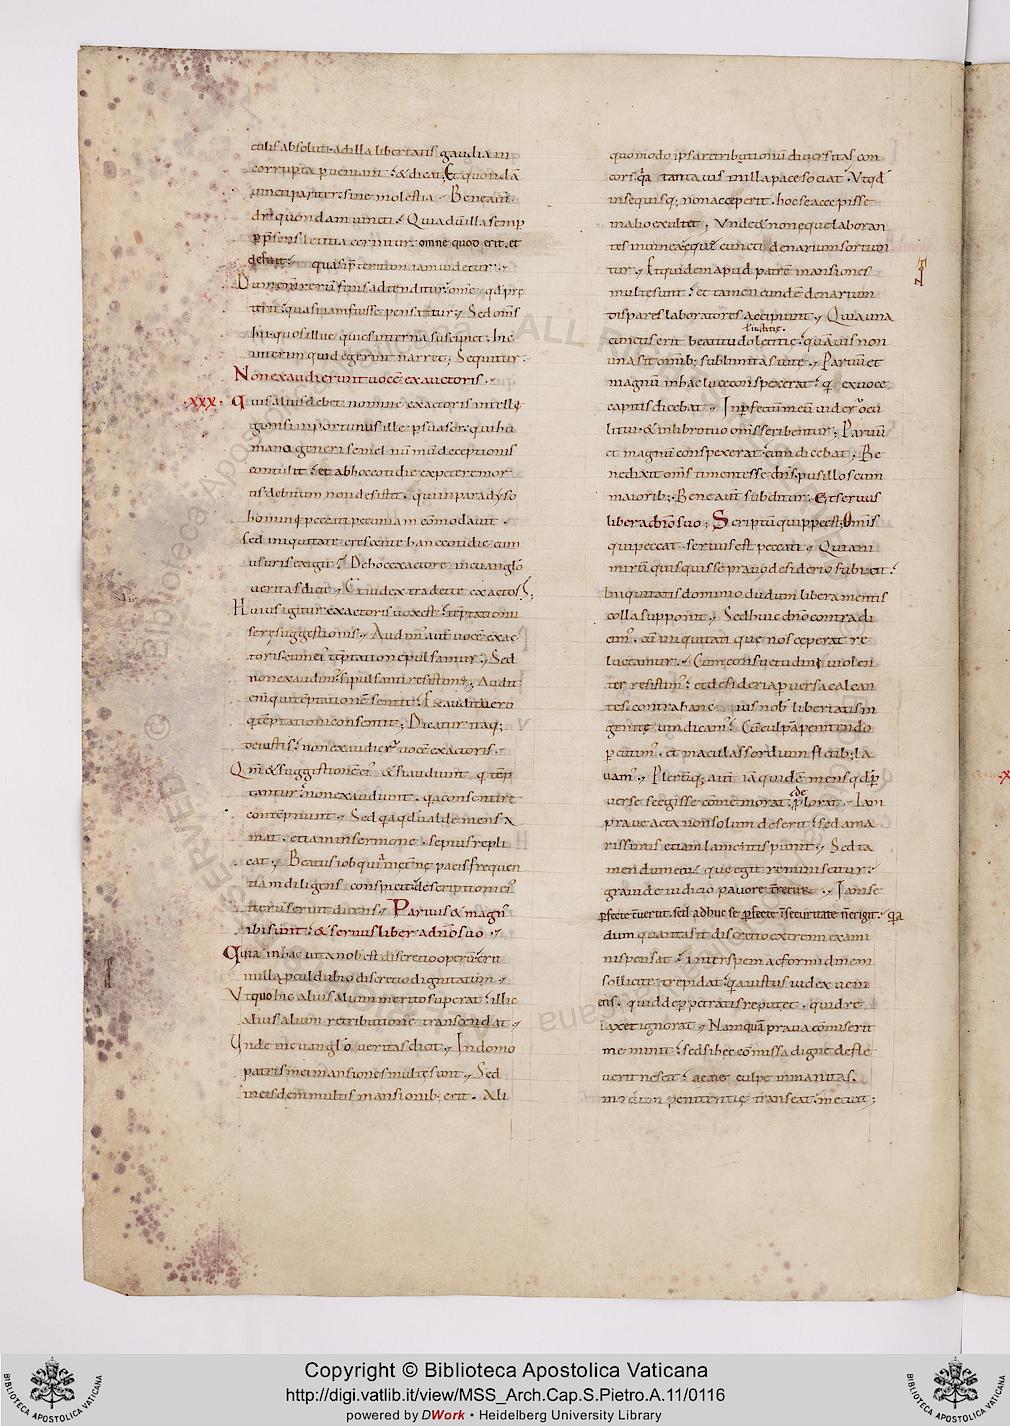 culis absoluti. ad illa libertatis gaudia in
corrupta perveniunt. & dicat; Et quondã
vincti pariter. sine molestia. Bene aut
dr quondam vincti. Quia dũ illa semp
p̃sens letitia cernitur. omne quod erit. et
defuit. quasi p̃teritum iam videtur.
Dum enim rerũ finis adtenditur. ome qd prę
terit. quasi iam fuisse pensatur. Sed oms
hii quos illuc quies interna suscipit. hic
interim quid egerint narret; Sequitur.
Non exaudierunt vocẽ exactoris.
.XXX.
Quis alius debet nomine exactoris intelle
gi. nisi inportunus ille p suasor. qui hu
mano generi semel nummũ deceptionis
contulit. et ab hoc cotidie expetere mor
tis debitum non desistit. qui in paradyso
homini peccati pecuniam cõmodavit.
sed iniquitate crescente hanc cotidie cum
usuris exigit. De hoc exactore in evanglõ
veritas dicit. Et iudex tradet te exactori;
Huius igitur exactoris vox est. tẽptationi
serę suggestionis. Audim aut vocẽ exac
toris. cum ei tẽptatione pulsamur. Sed
non exaudim. si pulsanti resistim; Audit
eni qui tẽptationẽ sentit. Exaudit vero
q tẽptationi consentit; Dicatur itaq;
de iustis. non exaudier vocẽ exactoris.
Qm & suggestionẽ ei & si audiunt q tẽp
tantur. non exaudiunt. qa consentire
contẽpnunt. Sed qa qd valde mens a
mat. etiam in sermone. sepius repli
cat. Beatus iob quia int ne pacis frequen
tiam diligens conspicit. descriptioni ei
iterũ servit dicens. Parvus & magn
ibi sunt. & servus liber a dno suo.
Quia in hac vita nob est discretio operũ. erit
in illa p cul dubio discretio dignitatum.
Ut quo hic alius alium merito superat. illic
alius alium retributione transcendat.
Unde in evanglõ veritas dicit. In domo
patris mei mansiones multe sunt. Sed
in eisdem multis mansionib; erit. Ali
quomodo ipsa retributionũ diversitas con
cors. qa tanta vis in illa pace sociat. Ut qd
in se quisq; non acceperit. hoc se accepisse
in alio exultet; Unde & non eque laboran
tes in vinea. equę cuncti denarium sortiun
tur. Et quidem apud patrẽ mansiones
multe sunt. et tamen eundẽ denarium
dispares laboratores accipiunt. Quia una
l iustitię.
cunctis erit beatitudo letitię. quãvis non
una sit omib; sublimitas vite. Parvũ et
magnũ in hac luce conspexerat. q ex voce
capitis dicebat. Inpfectum meũ viderũ ocu
li tui. & in libro tuo oms scribentur; Parvũ
et magnũ conspexerat cum dicebat; Be
nedixit oms timentes se dns. pusillos cum
maiorib;. Bene aut subditur; Et servus
liber a dno suo; Scriptũ quippe est; Omis
qui peccat. servus est peccati. Quia ni
mirũ quisquis se pravo desiderio subicit.
Iniquitatis dominio dudum libera mentis
colla supponit. Sed huic dno contradi
cim. cũ iniquitati quę nos ceperat re
luctamur. Cum consuetudini violen
ter resistim. et desideria p versa calcan
tes. contra hanc ius nob libertatis in
genite vindicam. Cũ culpã penitendo
p cutim. et maculas sordium fletib; la
vam. Plerũq; aut iã quidẽ mens qd p
de
verse se egisse cõmemorat. plorat. Iam
prave acta non solum deserit. sed ama
rissimis etiam lamentis punit. Sed ta
men dum eorũ quę egit reminiscitur.
gravi de iudicio pavore terretur. Iam se
perfecte cvertit. sed adhuc se perfecte i securitate n erigit. qa
dum quanta sit districtio extremi exami
nis pensat. inter spem ac formidinem
sollicite trepidat. qa iustus iudex veni
ens. quid de perpetratis reputet. quid re
laxet ignorat. Nam quã prava cõmiserit
meminit. sed si hęc cõmissa digne defle
verit nescit. ac ne culpe inmanitas.
modum penitentię transeat. metuit;